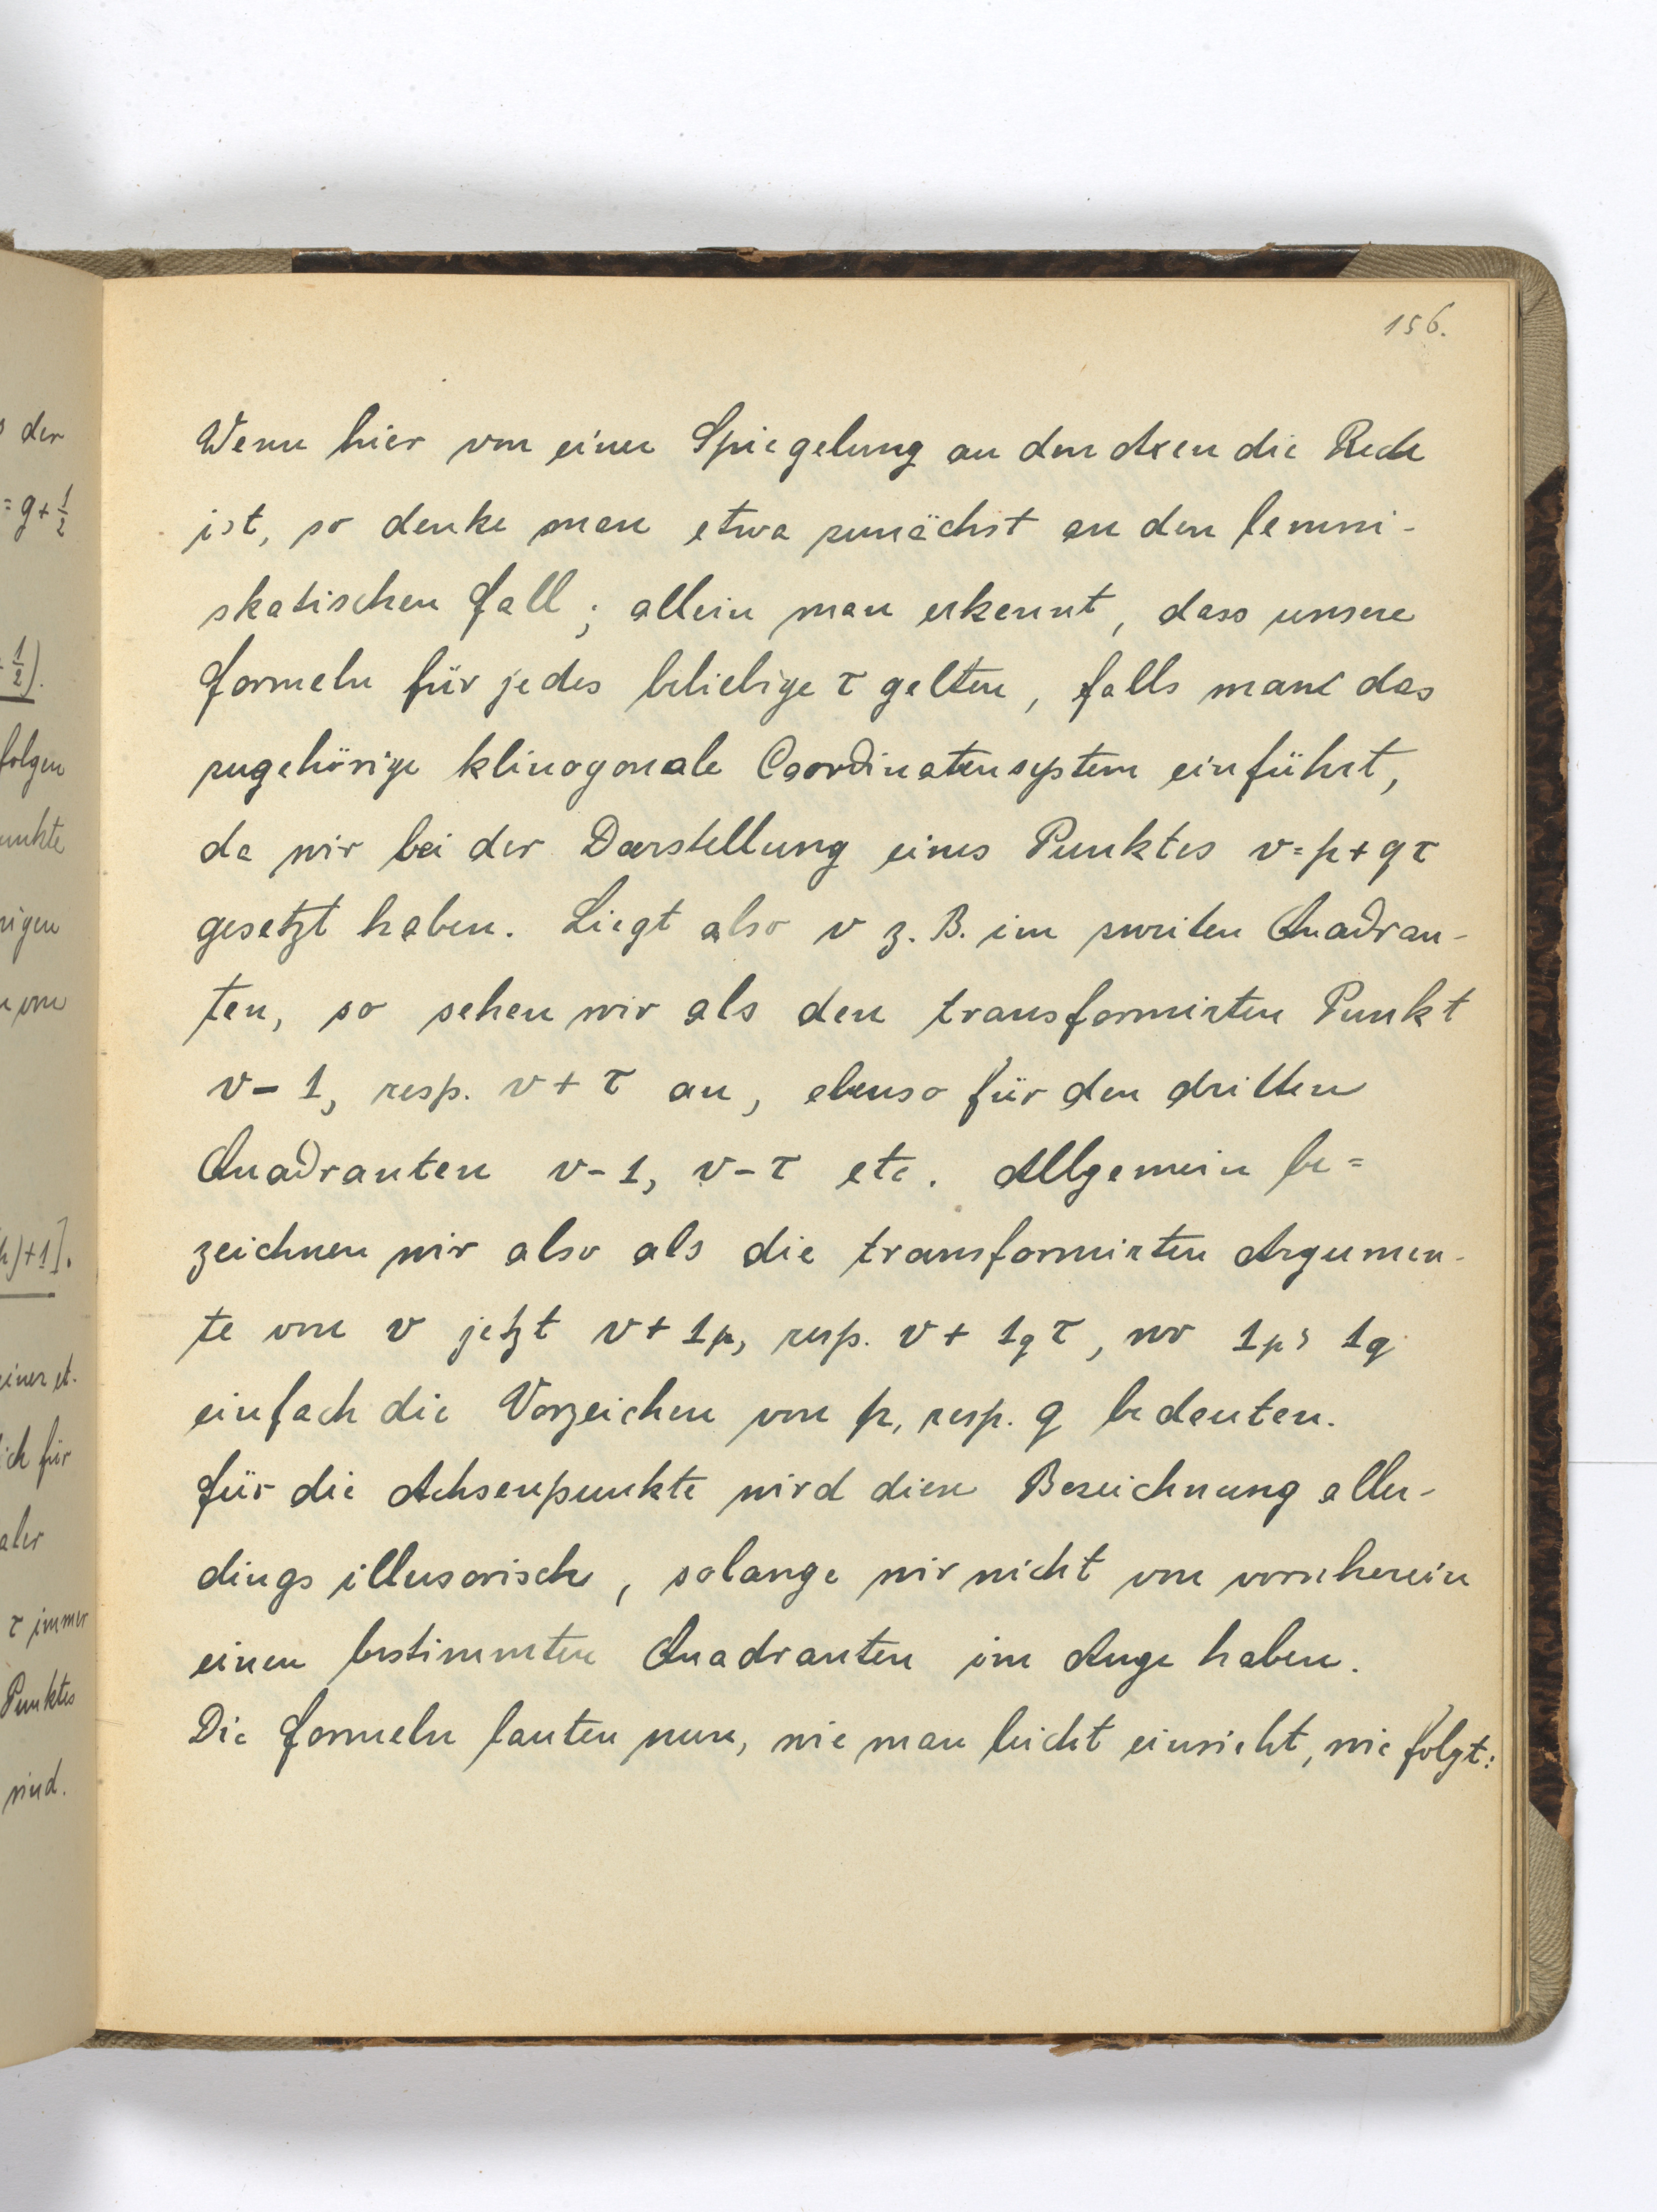 156.
Wenn hier von einer Spiegelung an den Axen die Rede
ist, so denke man etwa zunächst an den lemni-
skatischen Fall; allein man erkennt, dass unsere
Formeln für jedes beliebige τ gelten, falls man das
zugehörige klinogonale Coordinatensystem einführt,
da wir bei der Darstellung eines Punktes v=p+qτ
gesetzt haben. Liegt also v z. B. im zweiten Quadran-
ten, so sehen wir als den transformirten Punkt
v-1, resp. v+τ an, ebenso für den dritten
Quadranten v-1, v-τ etc. Allgemein be=
zeichnen wir also als die transformirten Argumen-
te von v jetzt v+1p, resp. v+1qτ, wo 1p, 1q
einfach die Vorzeichen von p, resp. q bedeuten.
Für die Achsenpunkte wird diese Bezeichnung aller-
dings illusorisch, solange wir nicht von vornherein
einen bestimmten Quadranten im Auge haben.
Die Formeln lauten nun, wie man leicht einsieht, wie folgt:
der
=g+1/2
1/2).
folgen
unkte
rigen
von
)+1].
einer et-
ich für
aler
τ immer
Punktes
sind.